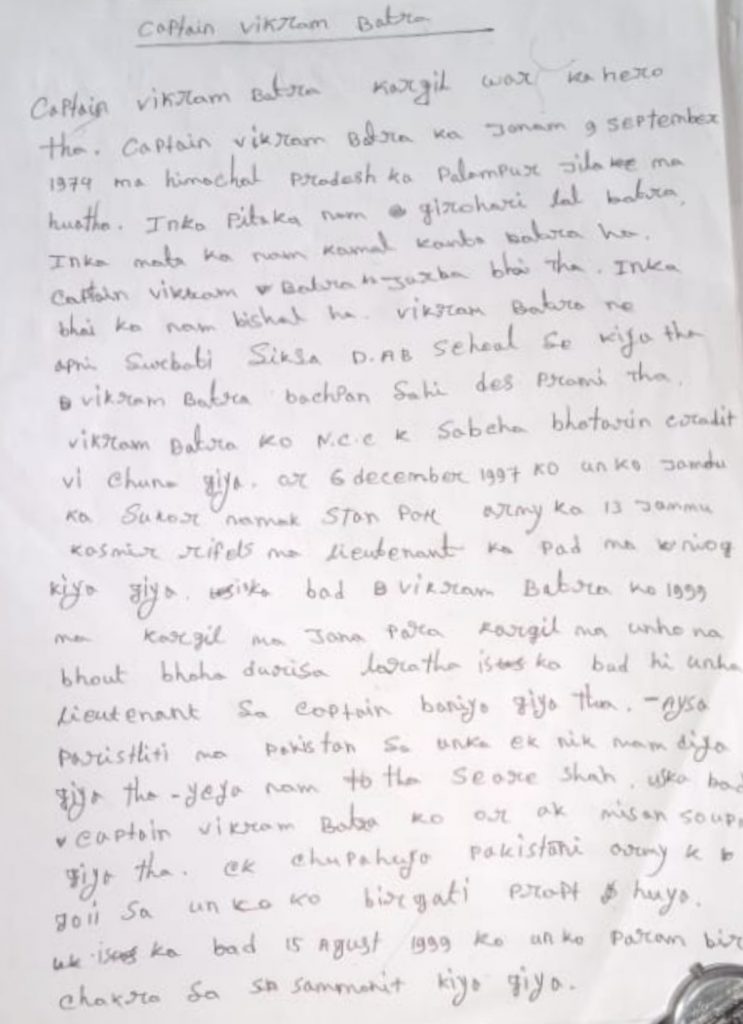 Captain vikram Batra
Captain vikram Batra kargil war ka hero
tha. Captain vikram Batra ka Janam 9 september
1974 ma himachal Pradesh ka Palampur Jila me ma
huatha. Inka Pitaka nam girdhari lal batra.
Inka mata ka nam kamal kanta batra ha.
Captain vikram Batra Jurba bhai tha. Inka
bhai ka nam bishal ha. vikram Batra ne
apni Siksa D.AB sehoal se kiya tha
vikram Batra bachPan Sahi des Prami tha.
vikram Batra ko N.C.C k Sabcha bhatarin coradit
vi chuna giya. ar 6 december 1997 ko unko Jamdu
ka namak army ka 13 Jammu
kasmir rifels ma lieutenant ka Pad ma niog
kiya giya. iska bad vikram Batra ko 1999
ma kargil ma Jana Para kargil ma unho na
bhout bhaha durisa laratha is ka bad hi unha
Lieutenant Sa captain baniya giya tha. -Aysa
Paristliti ma Pakistan Sa unka ek nik nam diya
giya tha -yeya nam to tha Seare Shah. uska bad
captain vikram Batra ko or ak misan soup
giya tha. ek chupahuya pakistani army k
goii Sa unko ko birgati Prapt huya.
uk is ka bad 15 Agust 1999 ko unko Param bir
chakra Sa sammanit kiya giya.